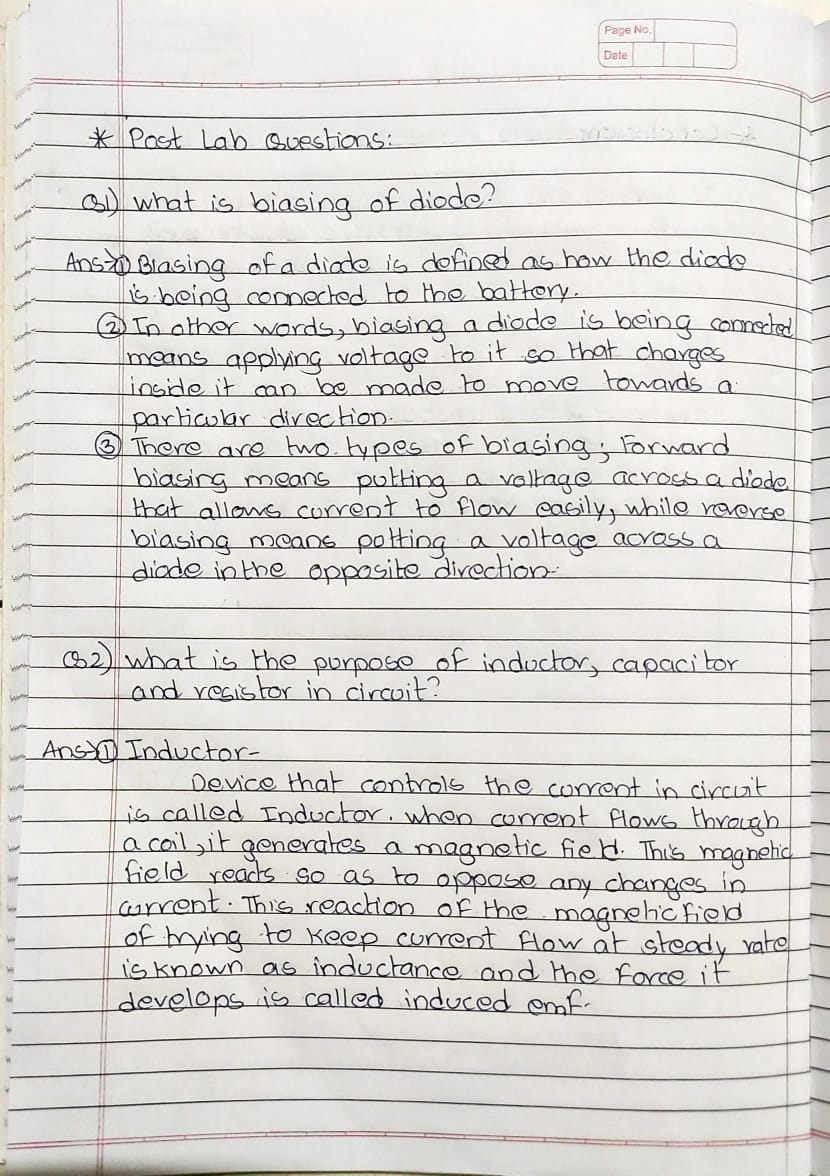 Page No.
Date
* Post Lab Questions:
Q1) what is biasing of diode?
Ans→① Biasing of a diode is defined as how the diode
is being connected to the battery.
② In other words, biasing a diode is being connected
means applying voltage to it so that charges
inside it can be made to move towards a
particular direction.
③ There are two types of biasing; Forward
biasing means putting a voltage across a diode
that allows current to flow easily, while reverse
biasing means putting a voltage across a
diode in the opposite direction.
Q2) what is the purpose of inductor, capacitor
and resistor in circuit?
Ans→① Inductor-
Device that controls the current in circuit
is called Inductor. when current flows through
a coil, it generates a magnetic field. This magnetic
field reacts so as to oppose any changes in
current. This reaction of the magnetic field
of trying to keep current flow at steady rate
is known as inductance and the force it
develops is called induced emf.